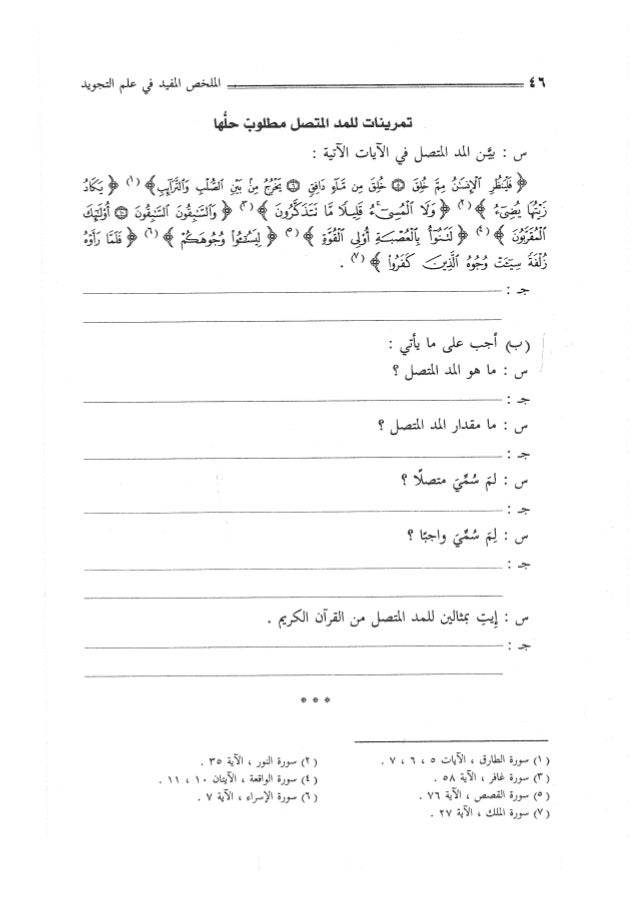 ٤٦ الملخص المفيد في علم التجويد
تمرينات للمد المتصل مطلوبٌ حلُّها
س : بيِّن المد المتصل في الآيات الآتية :
﴿ فَلْيَنظُرِ ٱلْإِنسَٰنُ مِمَّ خُلِقَ ۝ خُلِقَ مِن مَّآءٍ دَافِقٍ ۝ يَخْرُجُ مِنۢ بَيْنِ ٱلصُّلْبِ وَٱلتَّرَآئِبِ ﴾ (١) ﴿ يَكَادُ
زَيْتُهَا يُضِىٓءُ ﴾ (٢) ﴿ وَلَا ٱلْمُسِىٓءُ ۚ قَلِيلًا مَّا تَتَذَكَّرُونَ ﴾ (٣) ﴿ وَٱلسَّٰبِقُونَ ٱلسَّٰبِقُونَ ۝ أُوْلَٰٓئِكَ
ٱلْمُقَرَّبُونَ ﴾ (٤) ﴿ لَتَنُوٓأُ بِٱلْعُصْبَةِ أُوْلِى ٱلْقُوَّةِ ﴾ (٥) ﴿ لِيَسُـُٔوا۟ وُجُوهَكُمْ ﴾ (٦) ﴿ فَلَمَّا رَأَوْهُ
زُلْفَةً سِيٓـَٔتْ وُجُوهُ ٱلَّذِينَ كَفَرُوا۟ ﴾ (٧) .
جـ :
(ب) أجب على ما يأتي :
س : ما هو المد المتصل ؟
جـ :
س : ما مقدار المد المتصل ؟
جـ :
س : لمَ سُمِّيَ متصلًا ؟
جـ :
س : لِمَ سُمِّيَ واجبًا ؟
جـ :
س : إيتِ بمثالين للمد المتصل من القرآن الكريم .
جـ :
* * *
(١) سورة الطارق ، الآيات ٥ ، ٦ ، ٧ . (٢) سورة النور ، الآية ٣٥ .
(٣) سورة غافر ، الآية ٥٨ . (٤) سورة الواقعة ، الآيتان ١٠ ، ١١ .
(٥) سورة القصص ، الآية ٧٦ . (٦) سورة الإسراء ، الآية ٧ .
(٧) سورة الملك ، الآية ٢٧ .